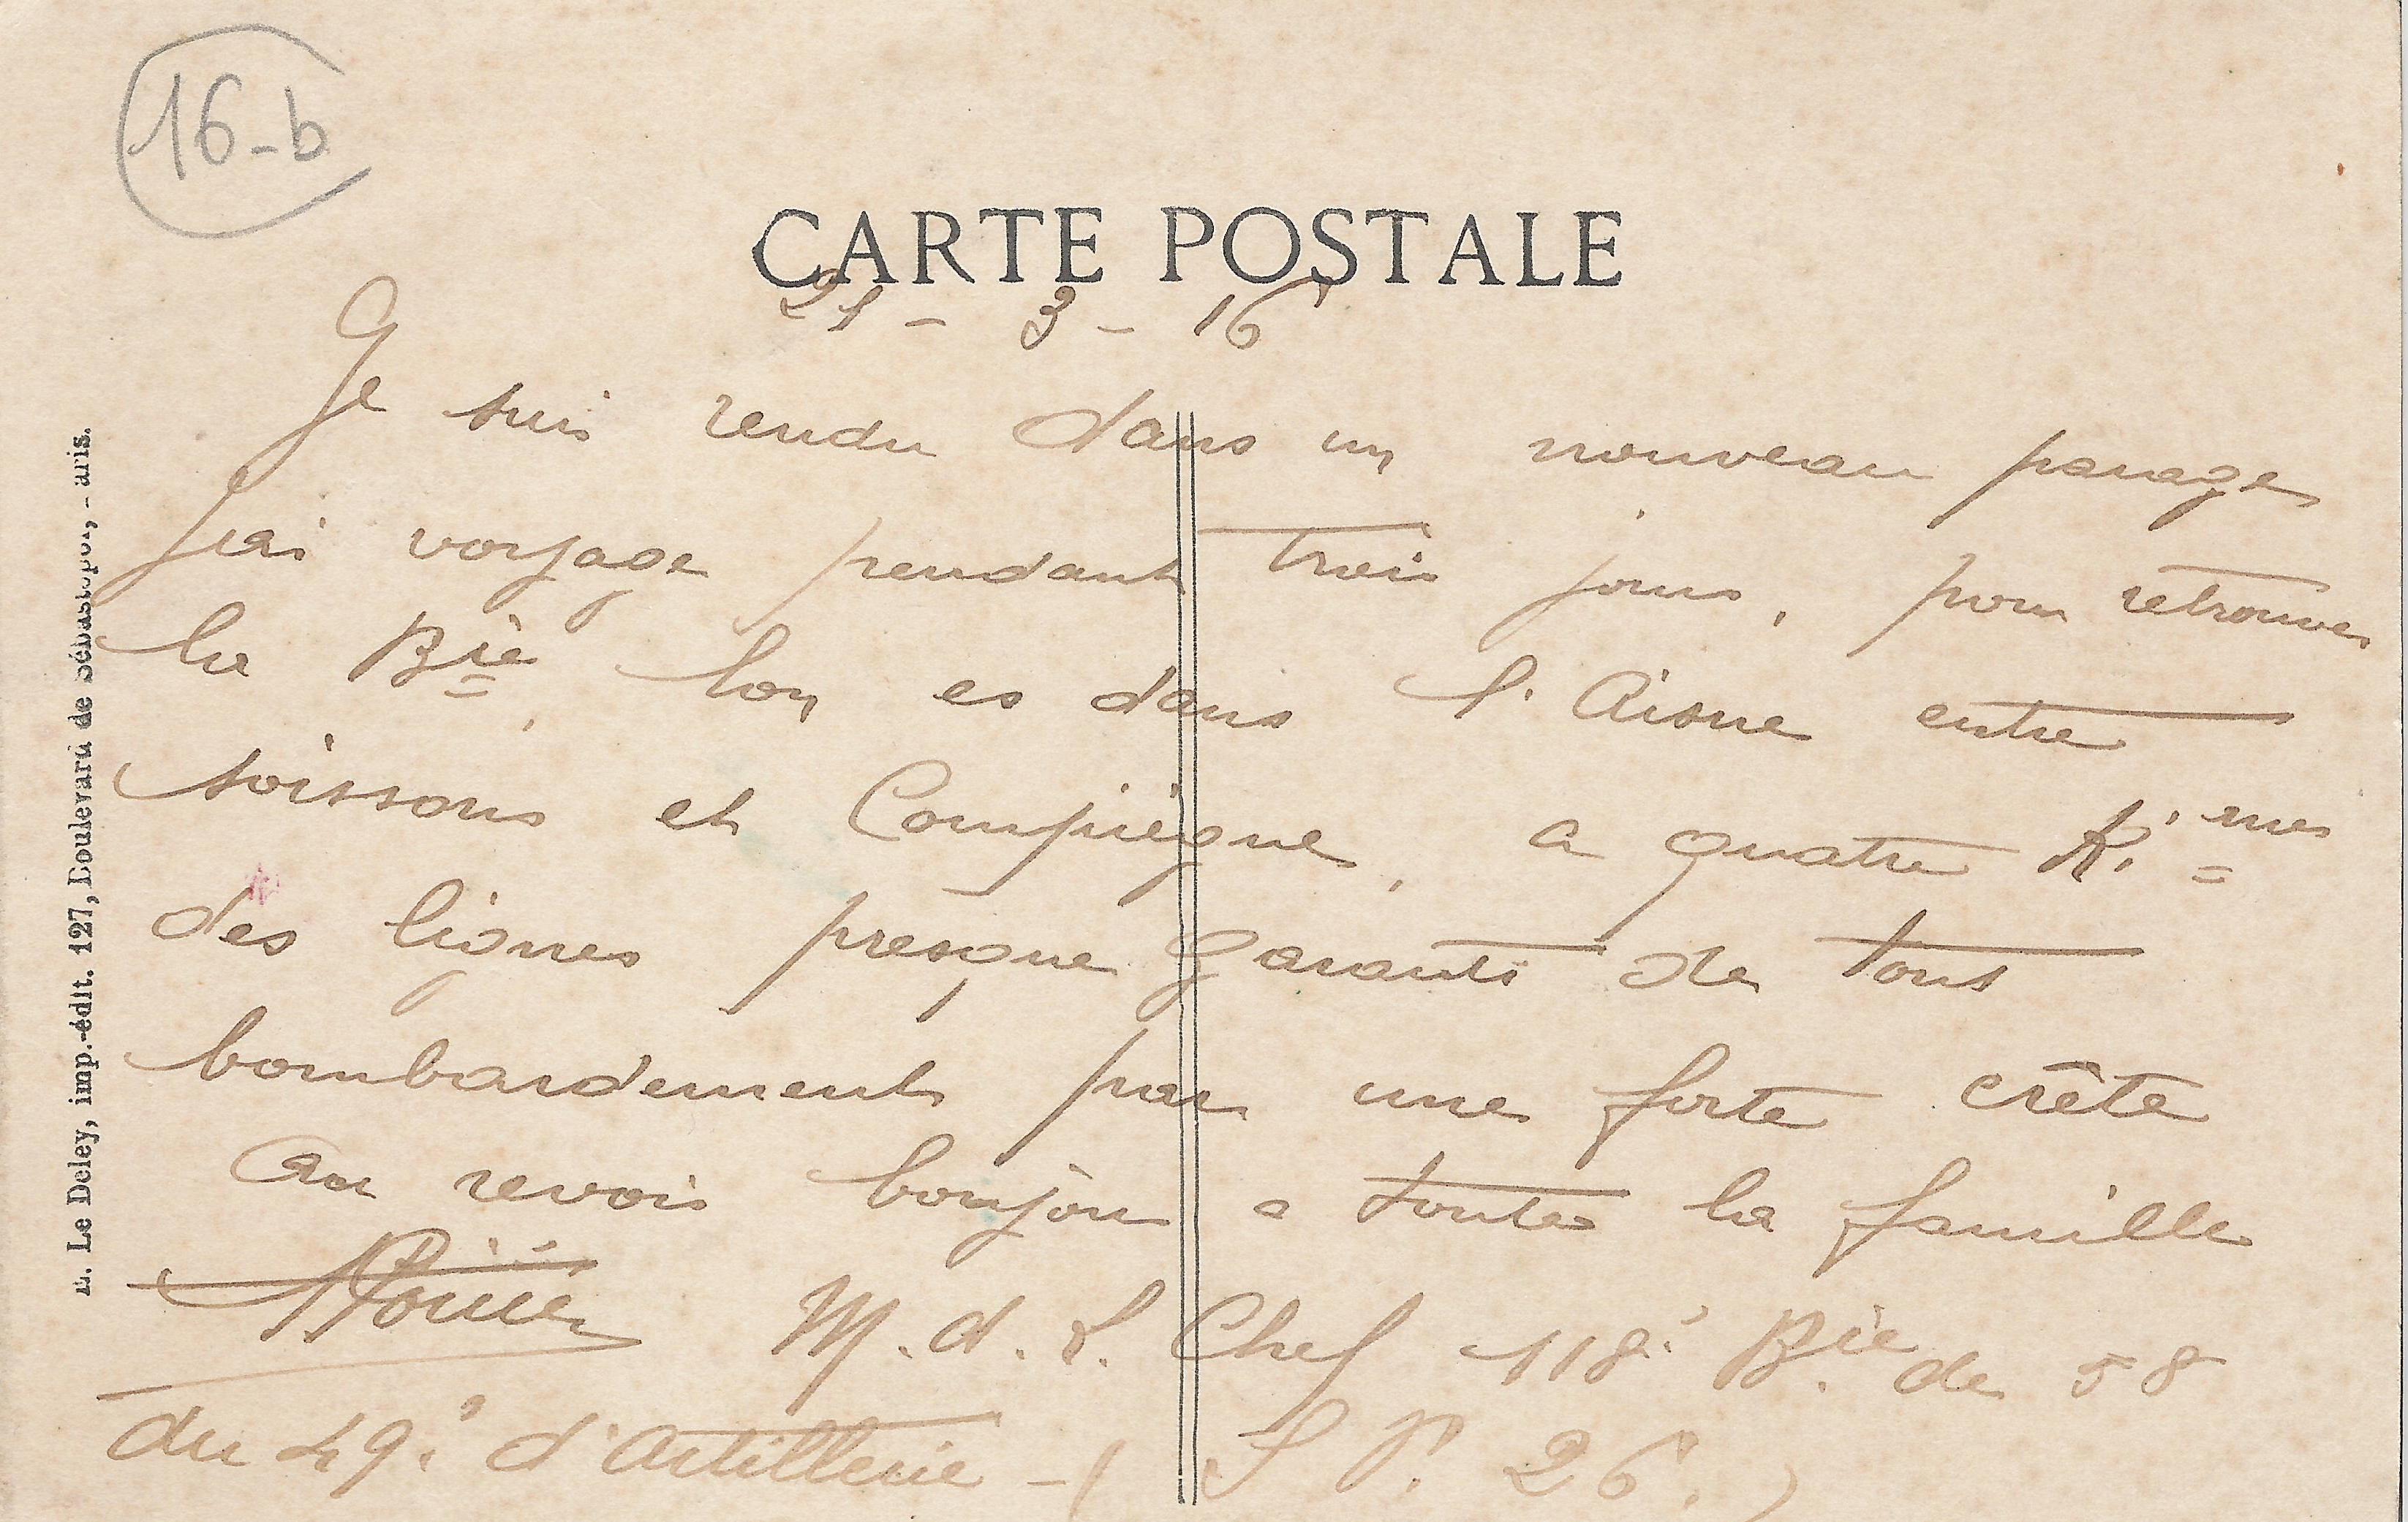 16-b
CARTE POSTALE
21 - 3 - 16
Je suis rendu dans un nouveau parages
J'ai voyage pendant trois jours, pour retrouver
la Bie, lon es dans l'Aisne entre
soissons et Compiègne, a quatre K.mes
des lignes presque garanti de tous
bombardement par une forte crête
Au revois bonjour a toutes la famille
M. d. L. Chef 118e Bie de 58
du 49e d'Artillerie - ( S P. 26. )
Le Deley, imp.-édit. 127, Boulevard de Sébastopol,